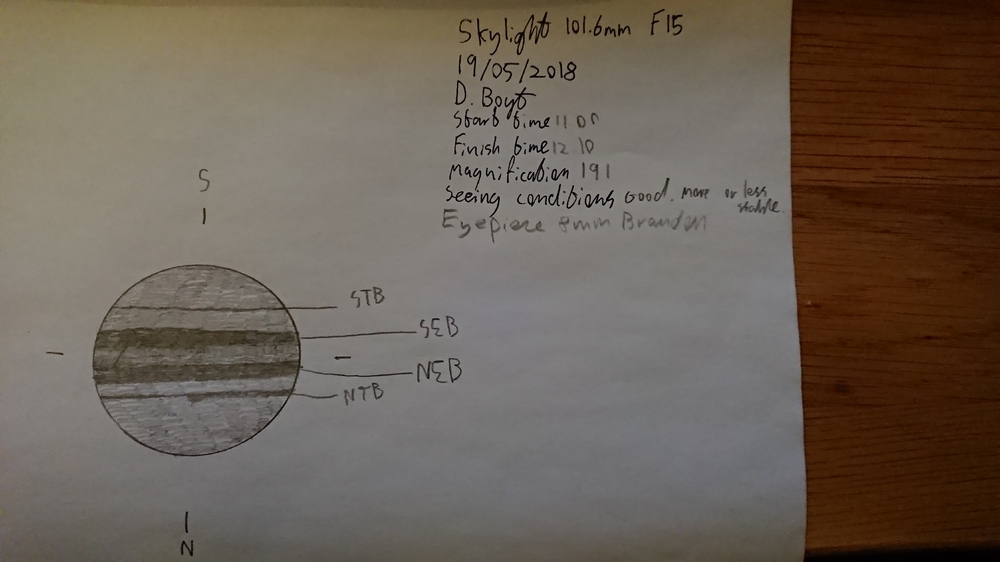 Skylight 101.6mm F15
19/05/2018
D. Boyt
Start time 11 00
Finish time 12 10
Magnification 191
Seeing conditions Good. more or less stable.
Eyepiece 8mm Brandon
S
STB
SEB
NEB
NTB
N